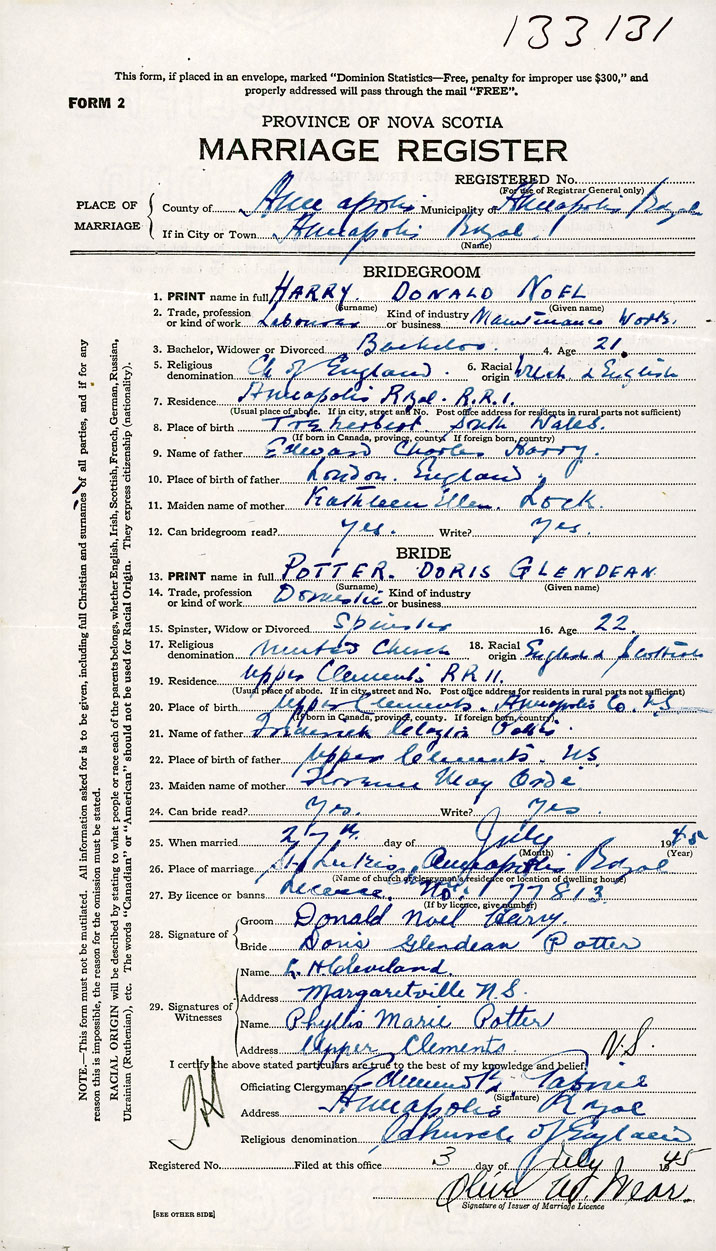 133131
This form, if placed in an envelope, marked "Dominion Statistics—Free, penalty for improper use $300," and
properly addressed will pass through the mail "FREE".
FORM 2
PROVINCE OF NOVA SCOTIA
MARRIAGE REGISTER
REGISTERED No.
(For use of Registrar General only)
PLACE OF MARRIAGE
County of Annapolis Municipality of Annapolis Royal
If in City or Town Annapolis Royal
(Name)
BRIDEGROOM
1. PRINT name in full HARRY. DONALD NOEL
(Surname) (Given name)
2. Trade, profession or kind of work Labourer Kind of industry or business Maintenance Works.
3. Bachelor, Widower or Divorced Bachelor. 4. Age 21.
5. Religious denomination Ch of England. 6. Racial origin Welsh & English
7. Residence Annapolis Royal. R.R.1.
(Usual place of abode. If in city, street and No. Post office address for residents in rural parts not sufficient)
8. Place of birth Treherbert South Wales.
(If born in Canada, province, county. If foreign born, country)
9. Name of father Edward Charles Harry.
10. Place of birth of father London. England.
11. Maiden name of mother Kathleen Ellen. Lock.
12. Can bridegroom read? yes. Write? yes.
BRIDE
13. PRINT name in full POTTER. DORIS GLENDEAN
(Surname) (Given name)
14. Trade, profession or kind of work Domestic Kind of industry or business
15. Spinster, Widow or Divorced Spinster 16. Age 22.
17. Religious denomination United Church 18. Racial origin English & Scottish
19. Residence Upper Clements RR11.
(Usual place of abode. If in city, street and No. Post office address for residents in rural parts not sufficient)
20. Place of birth Upper Clements. Annapolis Co. N.S.
(If born in Canada, province, county. If foreign born, country).
21. Name of father Frederick Potter
22. Place of birth of father Upper Clements. NS.
23. Maiden name of mother Florence May Orde
24. Can bride read? Yes. Write? Yes
25. When married 27th. day of July 1945
(Month) (Year)
26. Place of marriage St. Luke's, Annapolis Royal
(Name of church or clergyman's residence or location of dwelling house)
27. By licence or banns Licence. No. 77813
(If by licence, give number)
28. Signature of
Groom Donald Noel Harry.
Bride Doris Glendean Potter
29. Signatures of Witnesses
Name L. H Cleveland.
Address Margaretville N.S.
Name Phyllis Marie Potter
Address Upper Clements N.S.
I certify the above stated particulars are true to the best of my knowledge and belief.
Officiating Clergyman
(Signature)
Address Annapolis Royal
Religious denomination Church of England
Registered No. Filed at this office 3 day of July 1945
Signature of Issuer of Marriage Licence
[SEE OTHER SIDE]
NOTE.—This form must not be mutilated. All information asked for is to be given, including full Christian and surnames of all parties, and if for any
reason this is impossible, the reason for the omission must be stated.
RACIAL ORIGIN will be described by stating to what people or race each of the parents belongs, whether English, Irish, Scottish, French, German, Russian,
Ukrainian (Ruthenian), etc. The words "Canadian" or "American" should not be used for Racial Origin. They express citizenship (nationality).